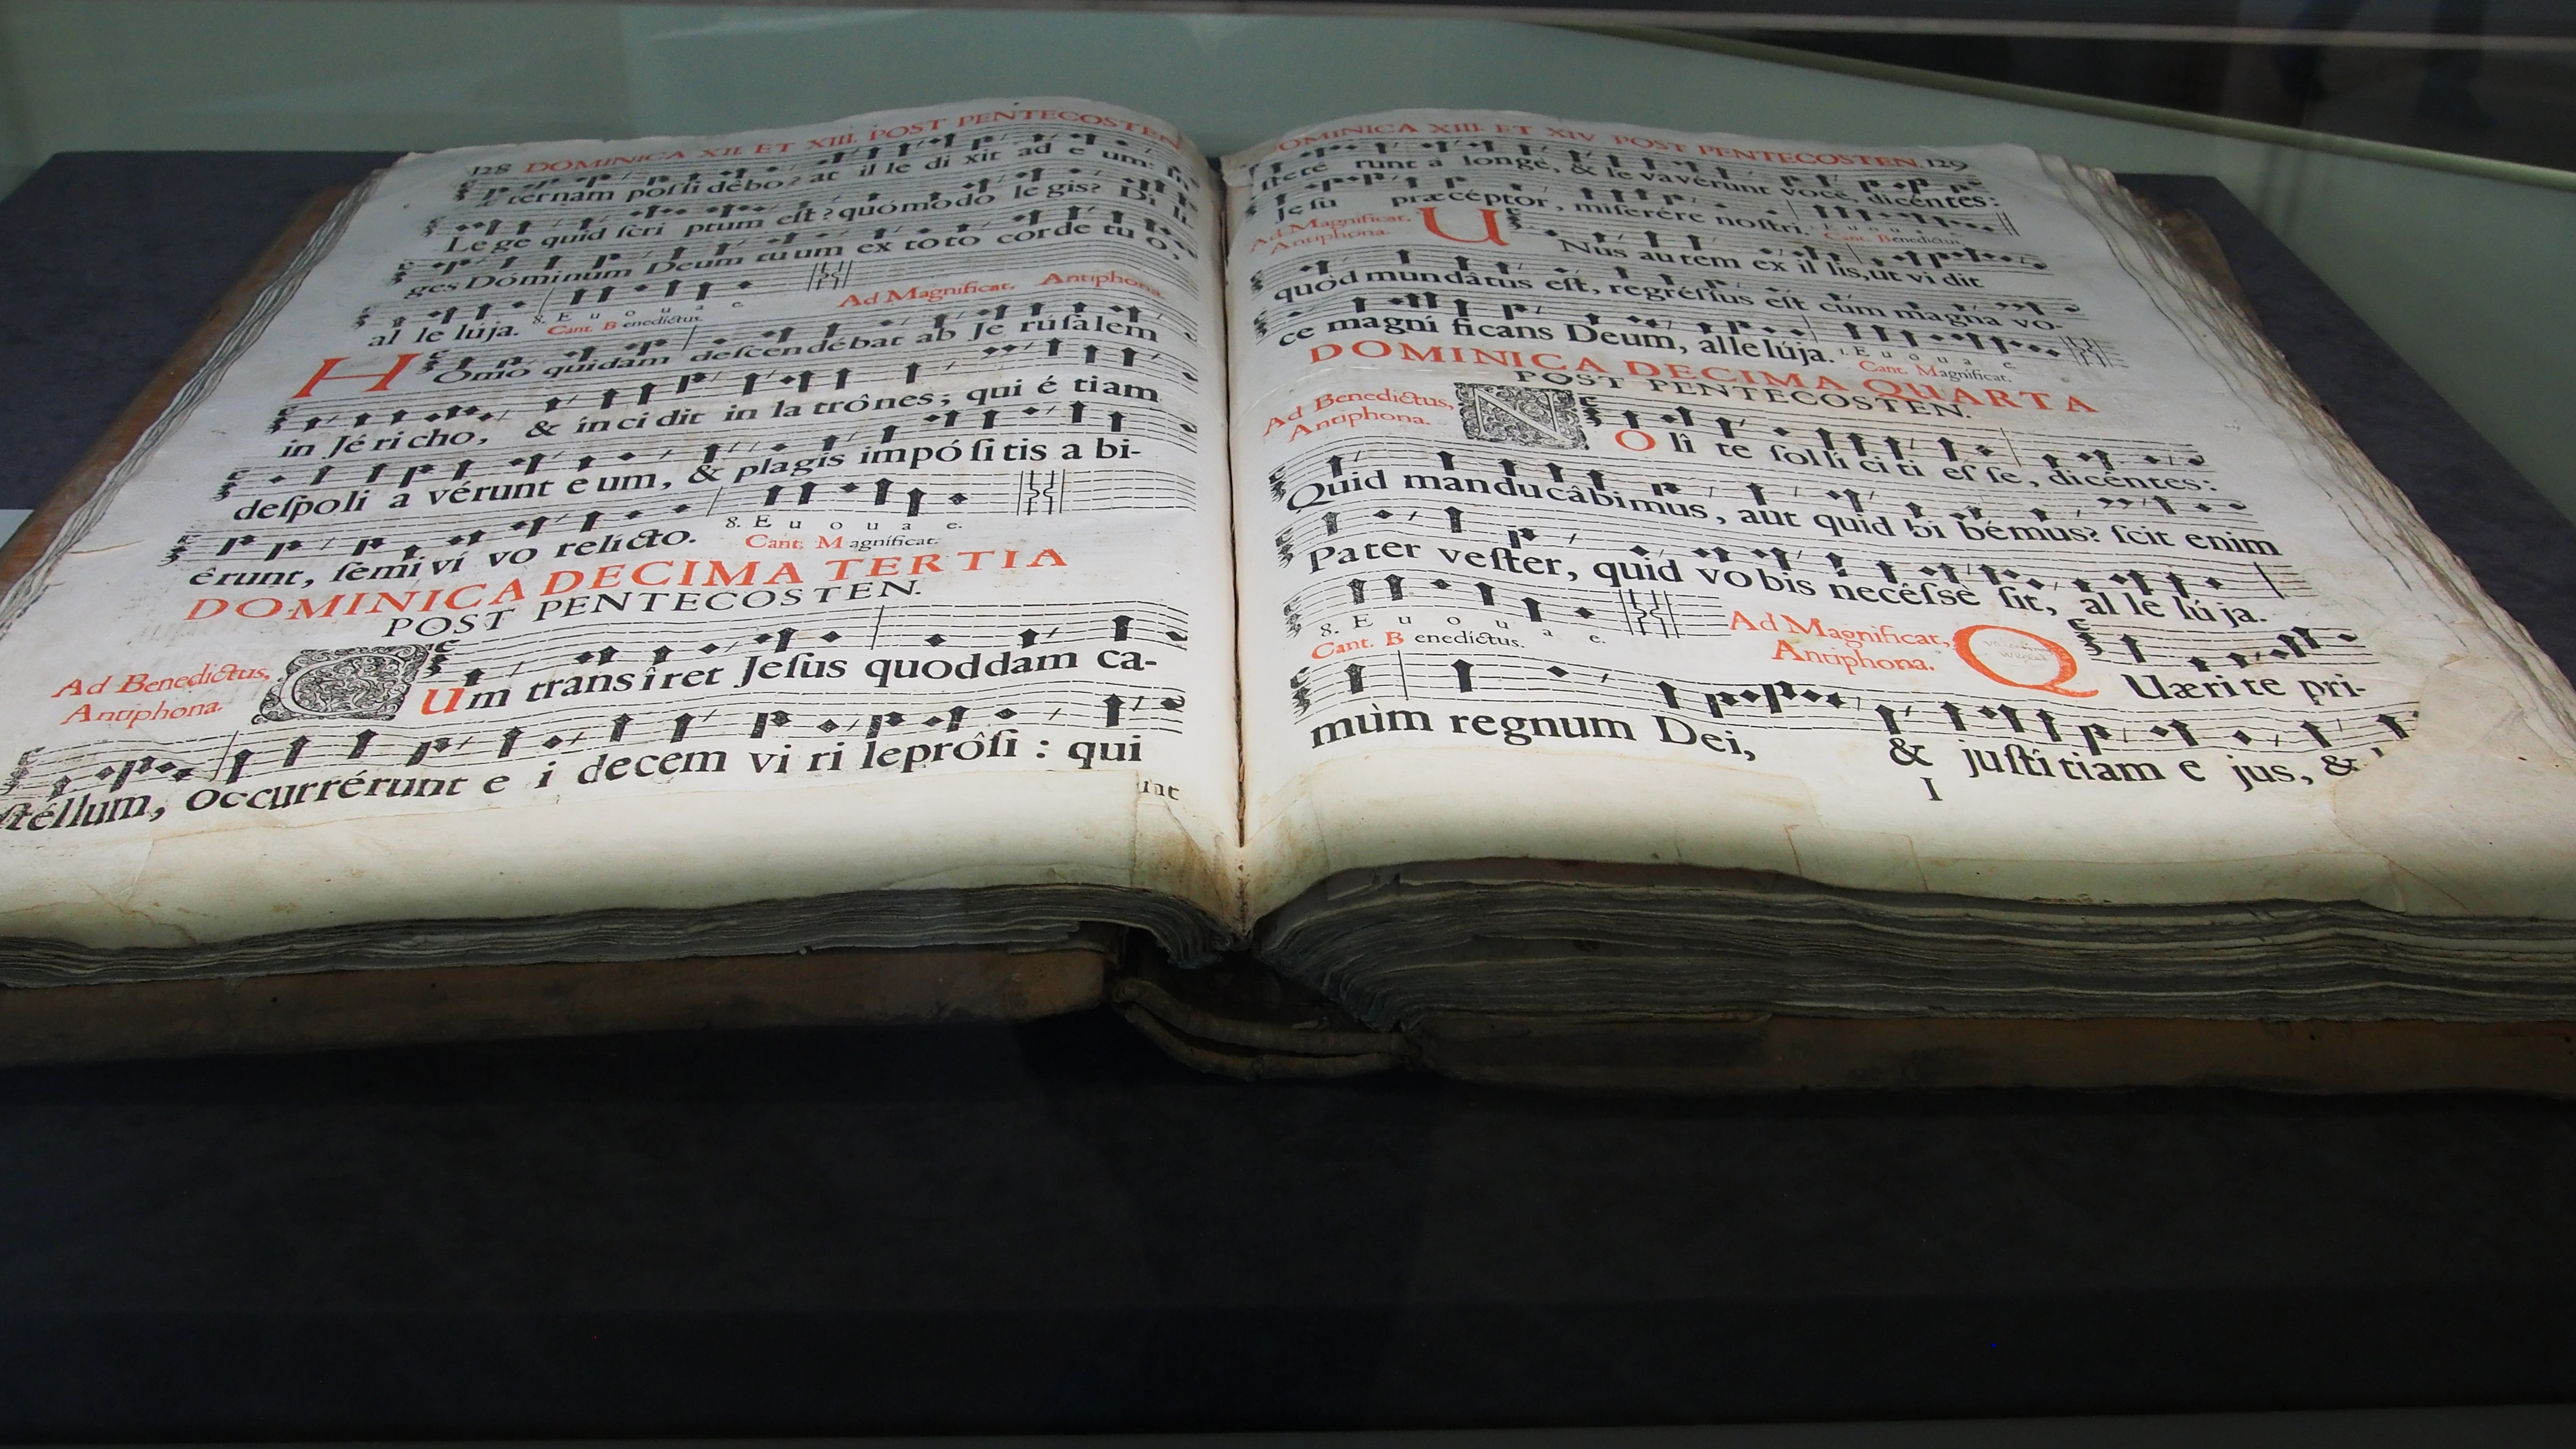 128 DOMINICA XII. ET XIII. POST PENTECOSTEN
ternam poſſi débo? at il le di xit ad e um:
Le ge quid ſcri ptum eſt? quómodo le gis? Di li
ges Dóminum Deum tuum ex toto corde tu o,
al le lúja. 8. E u o u a e.
Cant. B enedictus.
Ad Magnificat. Antiphona.
H Omo quidam deſcendébat ab Je rúſalem
in Jéricho, & íncidit in latrônes; qui é tiam
deſpoli a vérunt eum, & plagis impóſitis a bi-
êrunt, ſemiví vo relicto. 8. E u o u a e.
Cant. M agnificat.
DOMINICA DECIMA TERTIA
POST PENTECOSTEN.
Ad Benedictus,
Antiphona.
C Um transîret Jeſus quoddam ca-
ſtéllum, occurrérunt e i decem vi ri leprôſi : qui
DOMINICA XIII. ET XIV POST PENTECOSTEN. 129
ſteté runt à longè, & le vavérunt voce, dicéntes:
Jeſu præcéptor, miſerére noſtri. E u o u a e.
Cant. Benedictus.
Ad Magnificat.
Antiphona.
U Nus autem ex il lis, ut vi dit
quòd mundâtus eſt, regréſſus eſt cùm magna vo-
ce magní ficans Deum, allelúja. 1. E u o u a e.
Cant. Magnificat.
DOMINICA DECIMA QUARTA
POST PENTECOSTEN.
Ad Benedictus,
Antiphona.
N O lî te ſollíciti eſ ſe, dicéntes:
Quid manducâbimus, aut quid bi bémus? ſcit enim
Pater veſter, quid vobis necéſsè ſit, al le lú ja.
8. E u o u a e.
Cant. B enedictus.
Ad Magnificat,
Antiphona.
Q Uærite pri-
mùm regnum Dei, & juſtítiam e jus, &
I